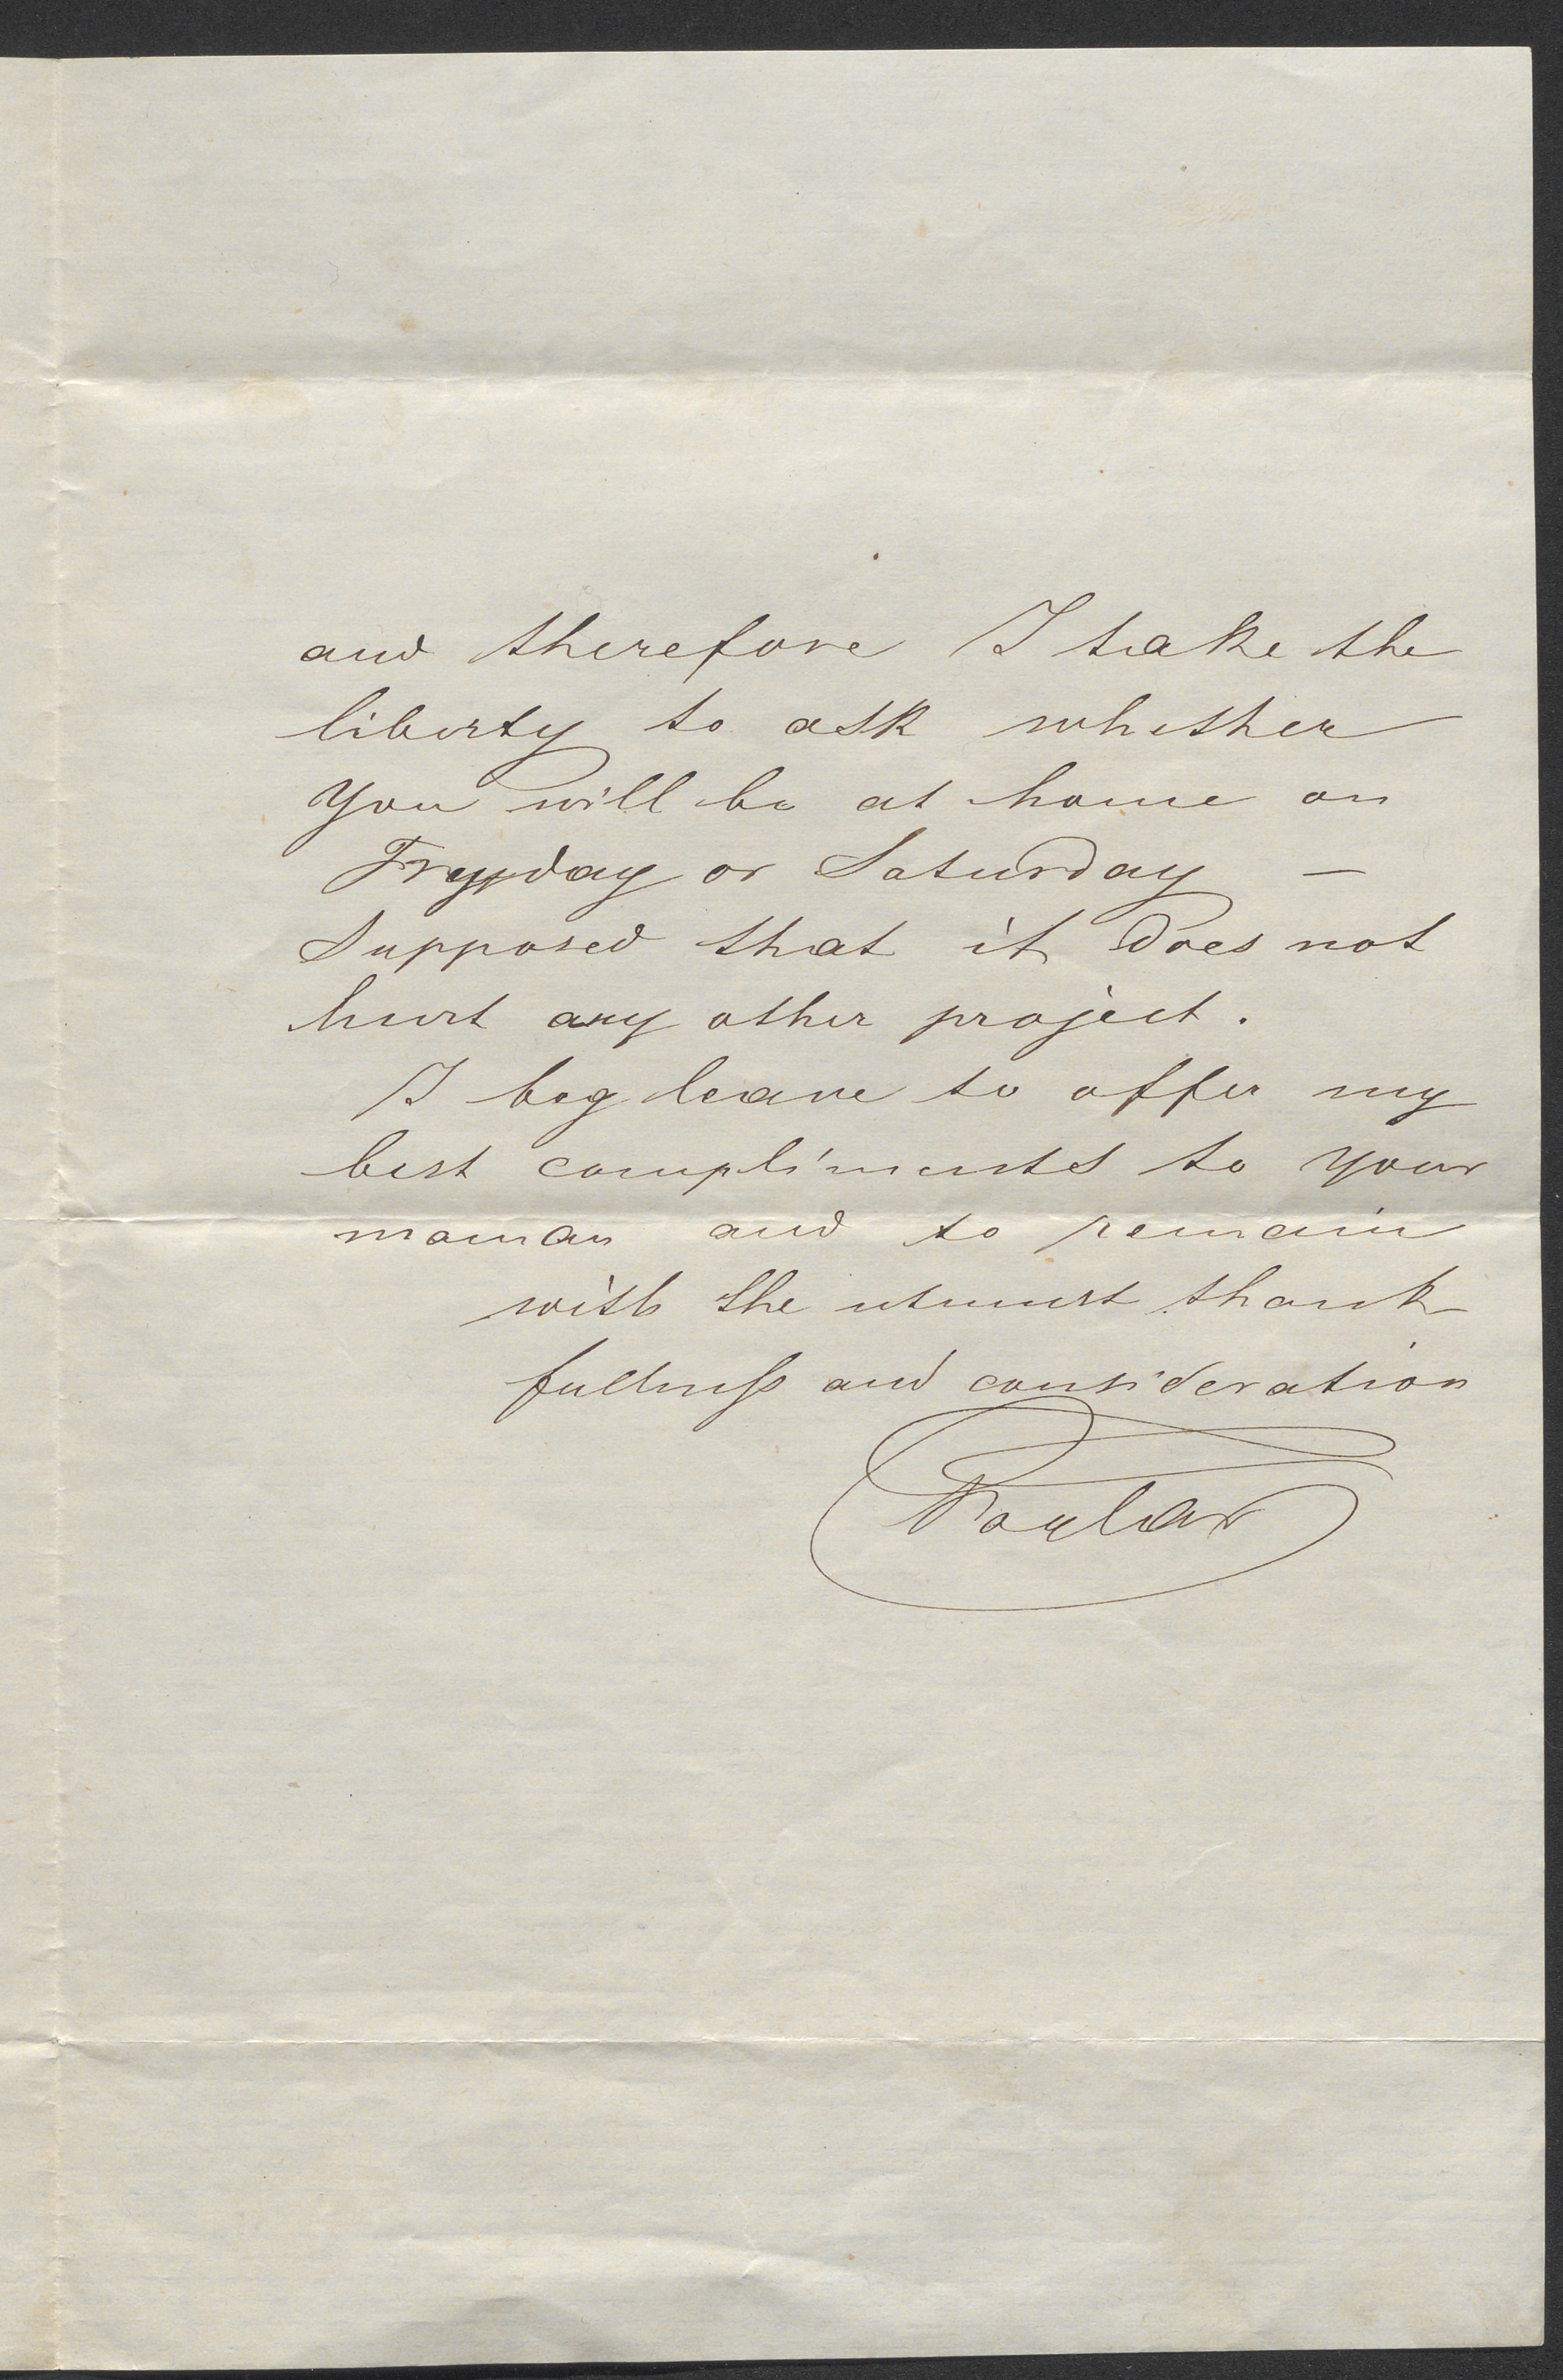 and therefore I take the
liberty to ask whether
you will be at home on
Freyday or Saturday —
supposed that it does not
hurt any other project.
I beg leave to offer my
best compliments to your
maman and to remain
with the utmost thank-
fullness and consideration